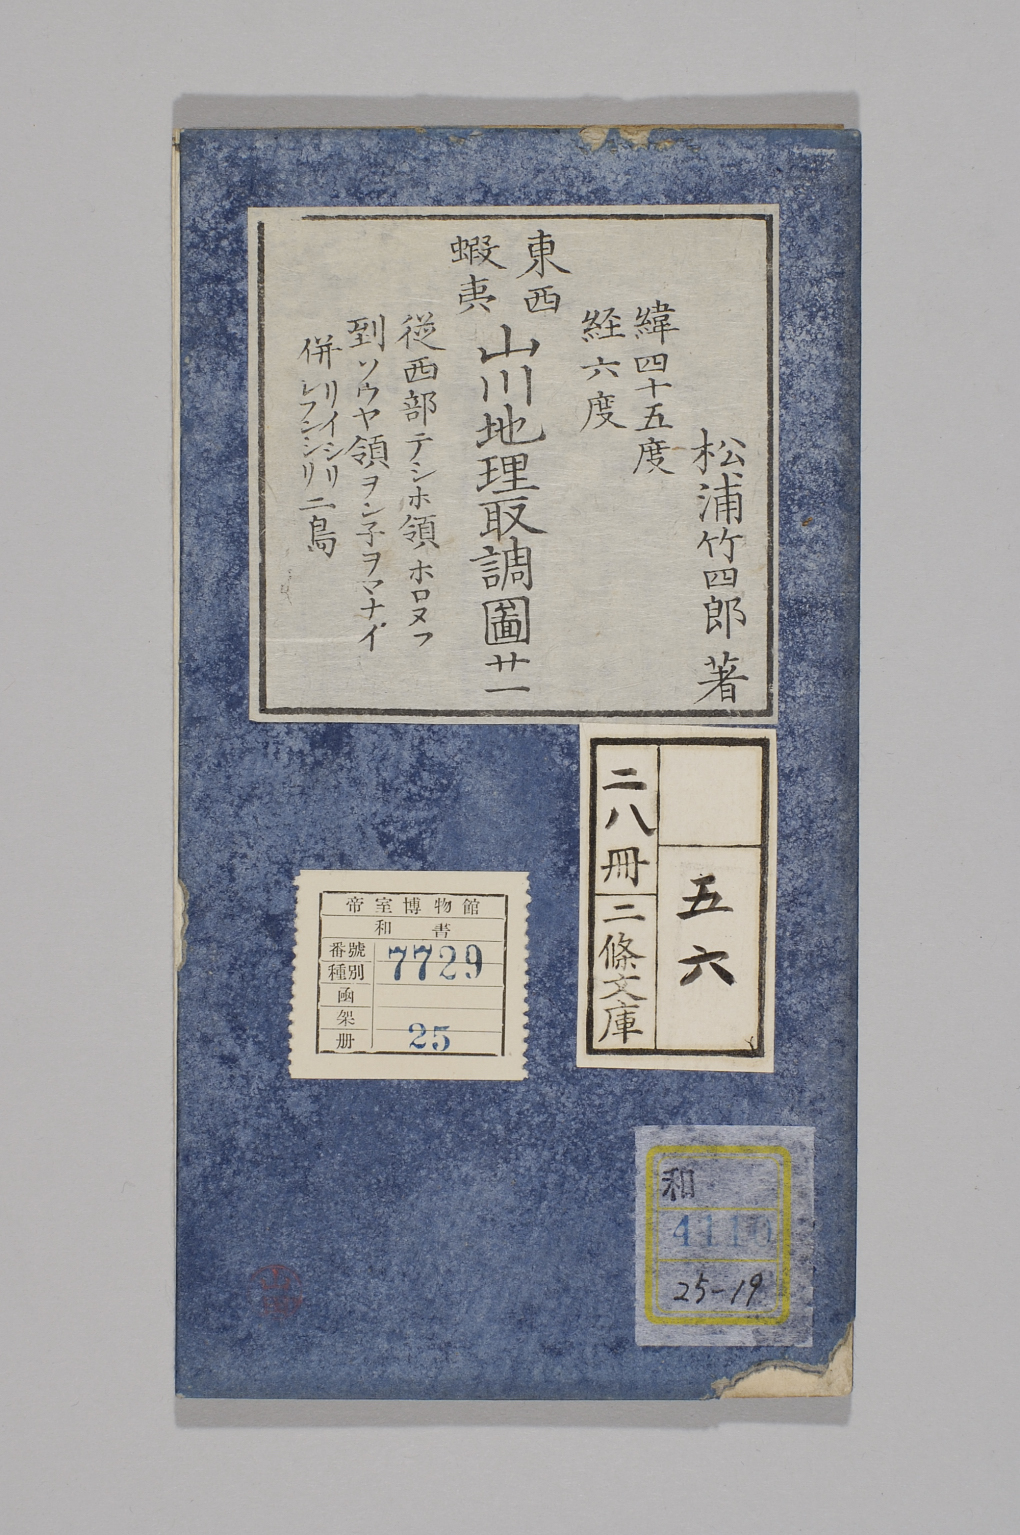 松浦竹四郎著
緯四十五度
経六度
東西
蝦夷
山川地理取調圖廿一
従西部テシホ領ホロヌフ
到ソウヤ領ヲン子ヲマナイ
併リイシリ
レフンシリ二島
五六
二八冊
二條文庫
帝室博物館
和書
番號 7729
種別
函
架
册 25
和
4110
25-19